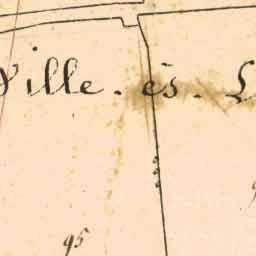 Ville. és. L
95